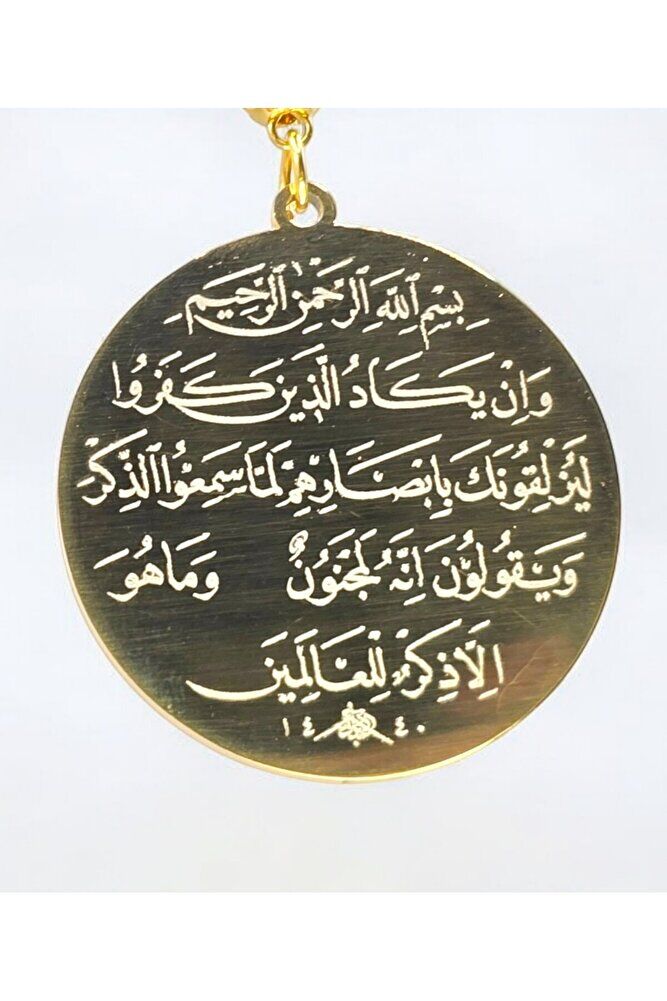 بِسْمِ اللهِ الرَّحْمٰنِ الرَّحِيمِ
وَاِنْ يَكَادُ الَّذِينَ كَفَرُوا
لَيُزْلِقُونَكَ بِاَبْصَارِهِمْ لَمَّا سَمِعُوا الذِّكْرَ
وَيَقُولُونَ اِنَّهُ لَمَجْنُونٌ وَمَا هُوَ
اِلَّا ذِكْرٌ لِلْعَالَمِينَ
١٤٤٠